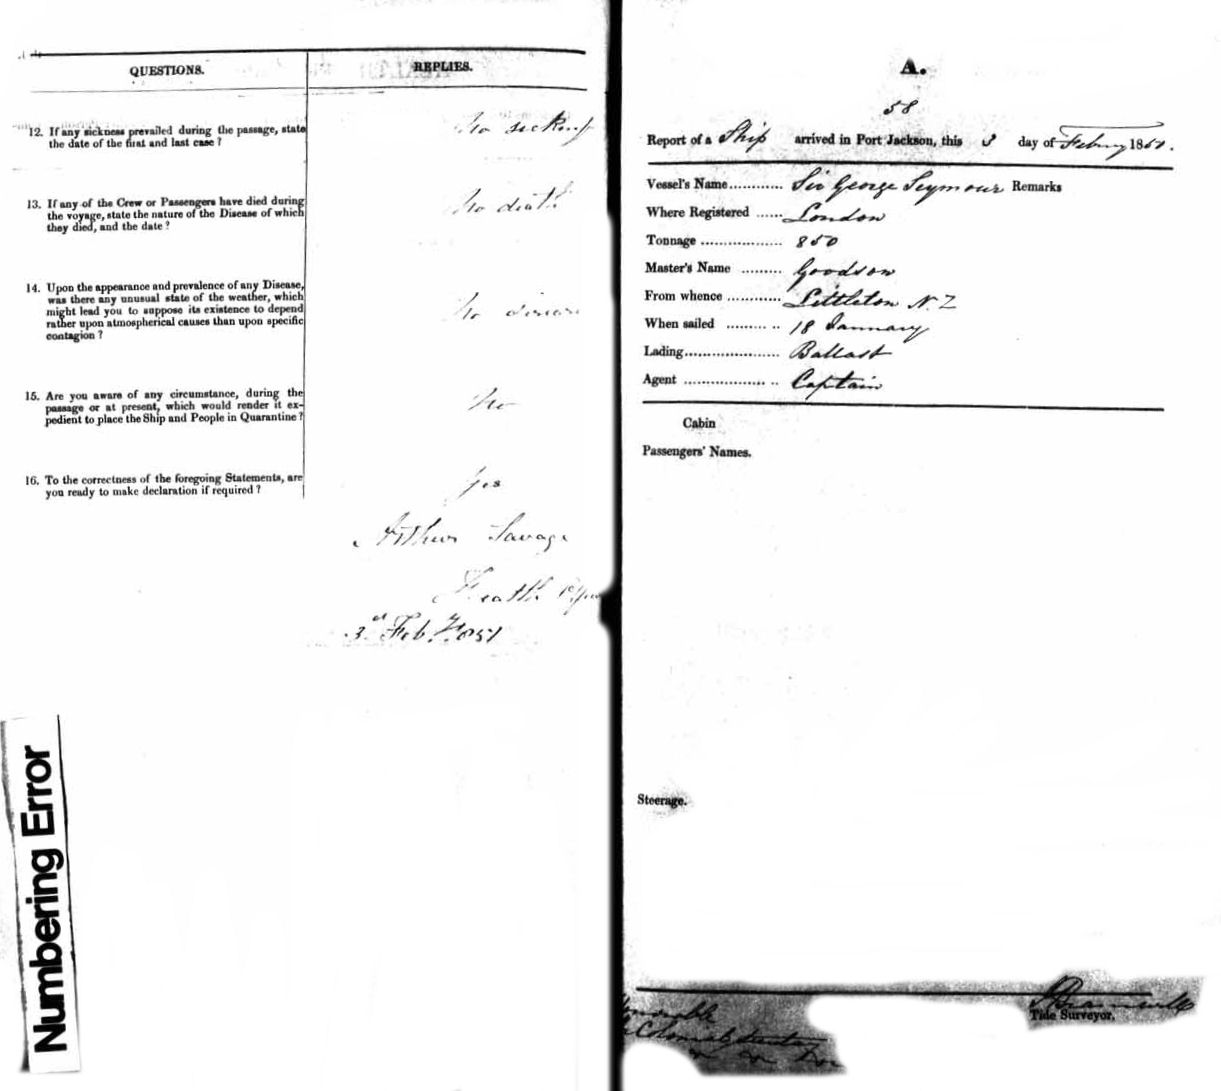 QUESTIONS.
REPLIES.
12. If any sickness prevailed during the passage, state
the date of the first and last case ?
No sickness
13. If any of the Crew or Passengers have died during
the voyage, state the nature of the Disease of which
they died, and the date ?
No death
14. Upon the appearance and prevalence of any Disease,
was there any unusual state of the weather, which
might lead you to suppose its existence to depend
rather upon atmospherical causes than upon specific
contagion ?
No disease
15. Are you aware of any circumstance, during the
passage or at present, which would render it ex-
pedient to place the Ship and People in Quarantine ?
No
16. To the correctness of the foregoing Statements, are
you ready to make declaration if required ?
Yes
Arthur Savage
Health
3d Feby 1851
Numbering Error
A.
58
Report of a Ship arrived in Port Jackson, this 3 day of Febuy 1851.
Vessel's Name............ Sir George Seymour Remarks
Where Registered ...... London
Tonnage .................. 850
Master's Name ......... Goodson
From whence ............ Littleton N.Z
When sailed ......... .. 18 January
Lading....................... Ballast
Agent .................. .. Captain
Cabin
Passengers' Names.
Steerage.
Tide Surveyor.
Colonial